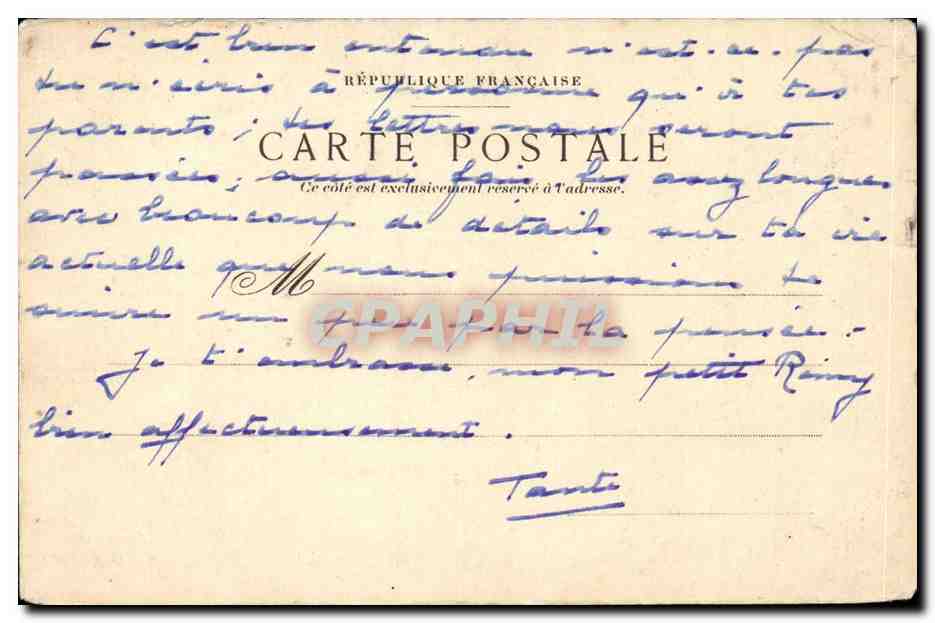 C'est bien entendu n'est-ce-pas
RÉPUBLIQUE FRANÇAISE
tu n'écris à personne qu'à tes
parents; tes lettres nous seront
CARTE POSTALE
passées; aussi fais les assez longues
Ce côté est exclusivement réservé à l'adresse.
avec beaucoup de détails sur ta vie
actuelle que nous puissions te
M
suivre un peu par la pensée.
CPAPHIL
Je t'embrasse, mon petit Rémy
bien affectueusement.
Tante